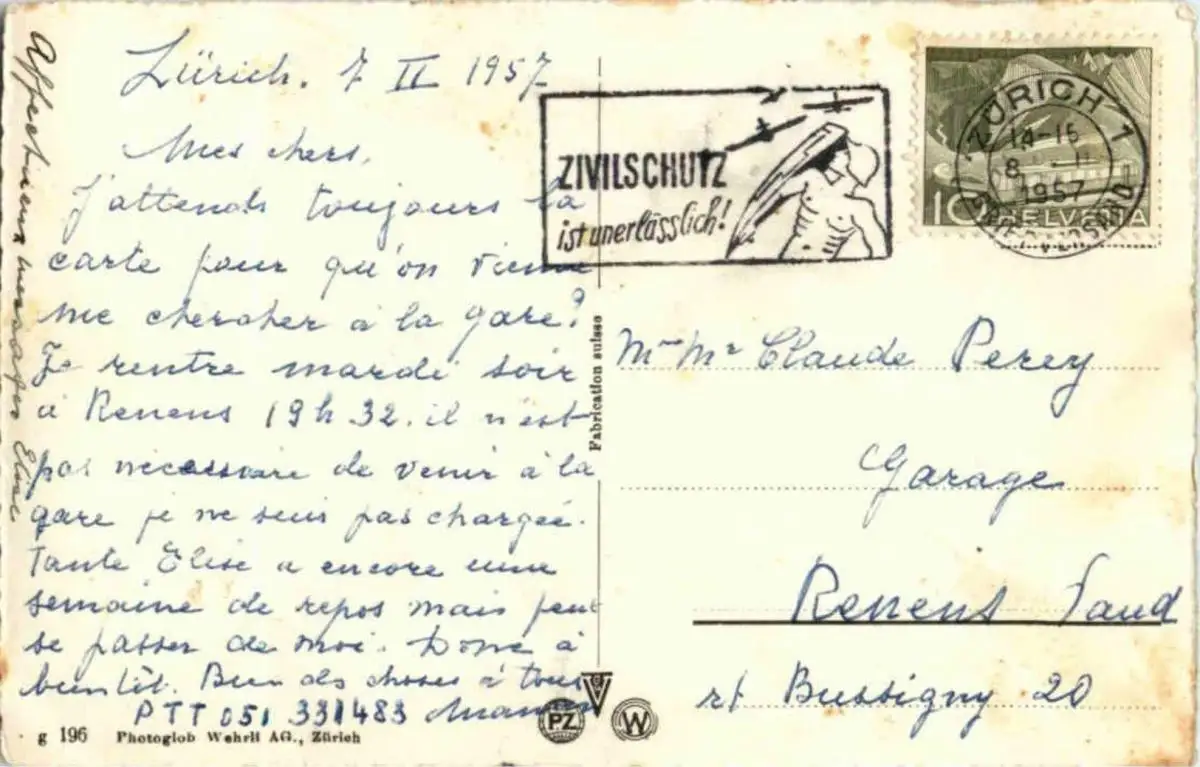 Zürich. 7 II 1957
Mes chers,
J'attends toujours la
carte pour qu'on vienne
me chercher à la gare?
Je rentre mardi soir
à Renens 19 h 32. il n'est
pas nécessaire de venir à la
gare je ne suis pas chargée.
Tante Elise a encore une
semaine de repos mais peut
se passer de moi. Donc à
bientôt. Bien ds choses à tous
PTT 051 331483 Maman
Affectueux messages Elise
g 196 Photoglob Wehrli AG., Zürich
Fabrication suisse
PZ W
ZIVILSCHUTZ
ist unerlässlich!
ZÜRICH 1
14-15
8. II
1957
BRIEFVERSAND
10 HELVETIA
Mme Mr Claude Perey
Garage
Renens Vaud
rt Bussigny 20